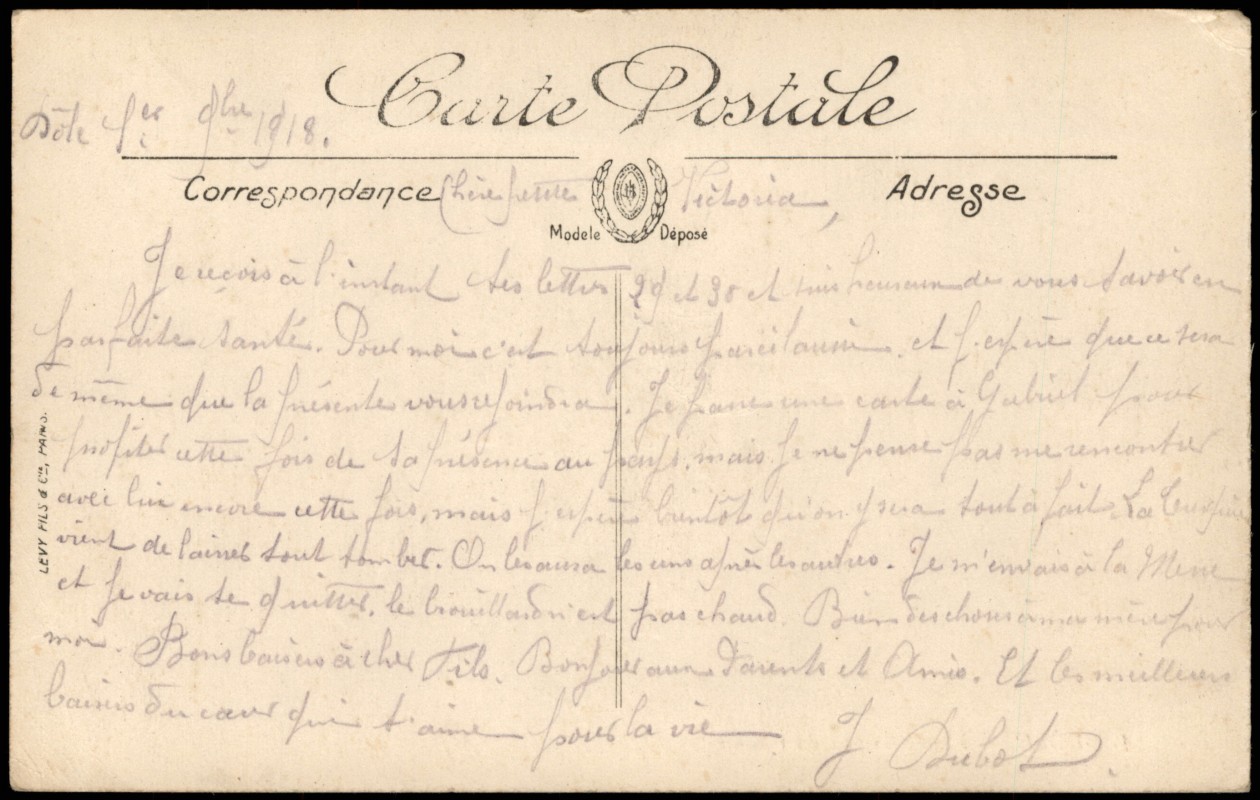 Carte Postale
Dôle 1er 9bre 1918.
Correspondance
Adresse
Chère petite Victoria,
Modele Déposé
Je reçois à l'instant tes lettres 29 et 30 et suis heureux de vous savoir en
parfaite santé. Pour moi c'est toujours pareil aussi, et j'espère que ce sera
de même que la présente vous rejoindra. Je passe une carte à Gabriel pour
profiter cette fois de sa présence au pays, mais je ne pense pas me rencontrer
avec lui encore cette fois, mais j'espère bientôt qu'on y sera tout à fait La Turquie
vient de laisser tout tomber. On les aura les uns après les autres. Je m'en vais à la Messe
et je vais te quitter, le brouillard n'est pas chaud. Bien des choses à ma mère pour
moi. Bons baisers à cher Fils. Bonjour aux Parents et Amis. Et les meilleurs
baisers du cœur qui t'aime pour la vie
J Dubot
LEVY FILS & Cie, PARIS.